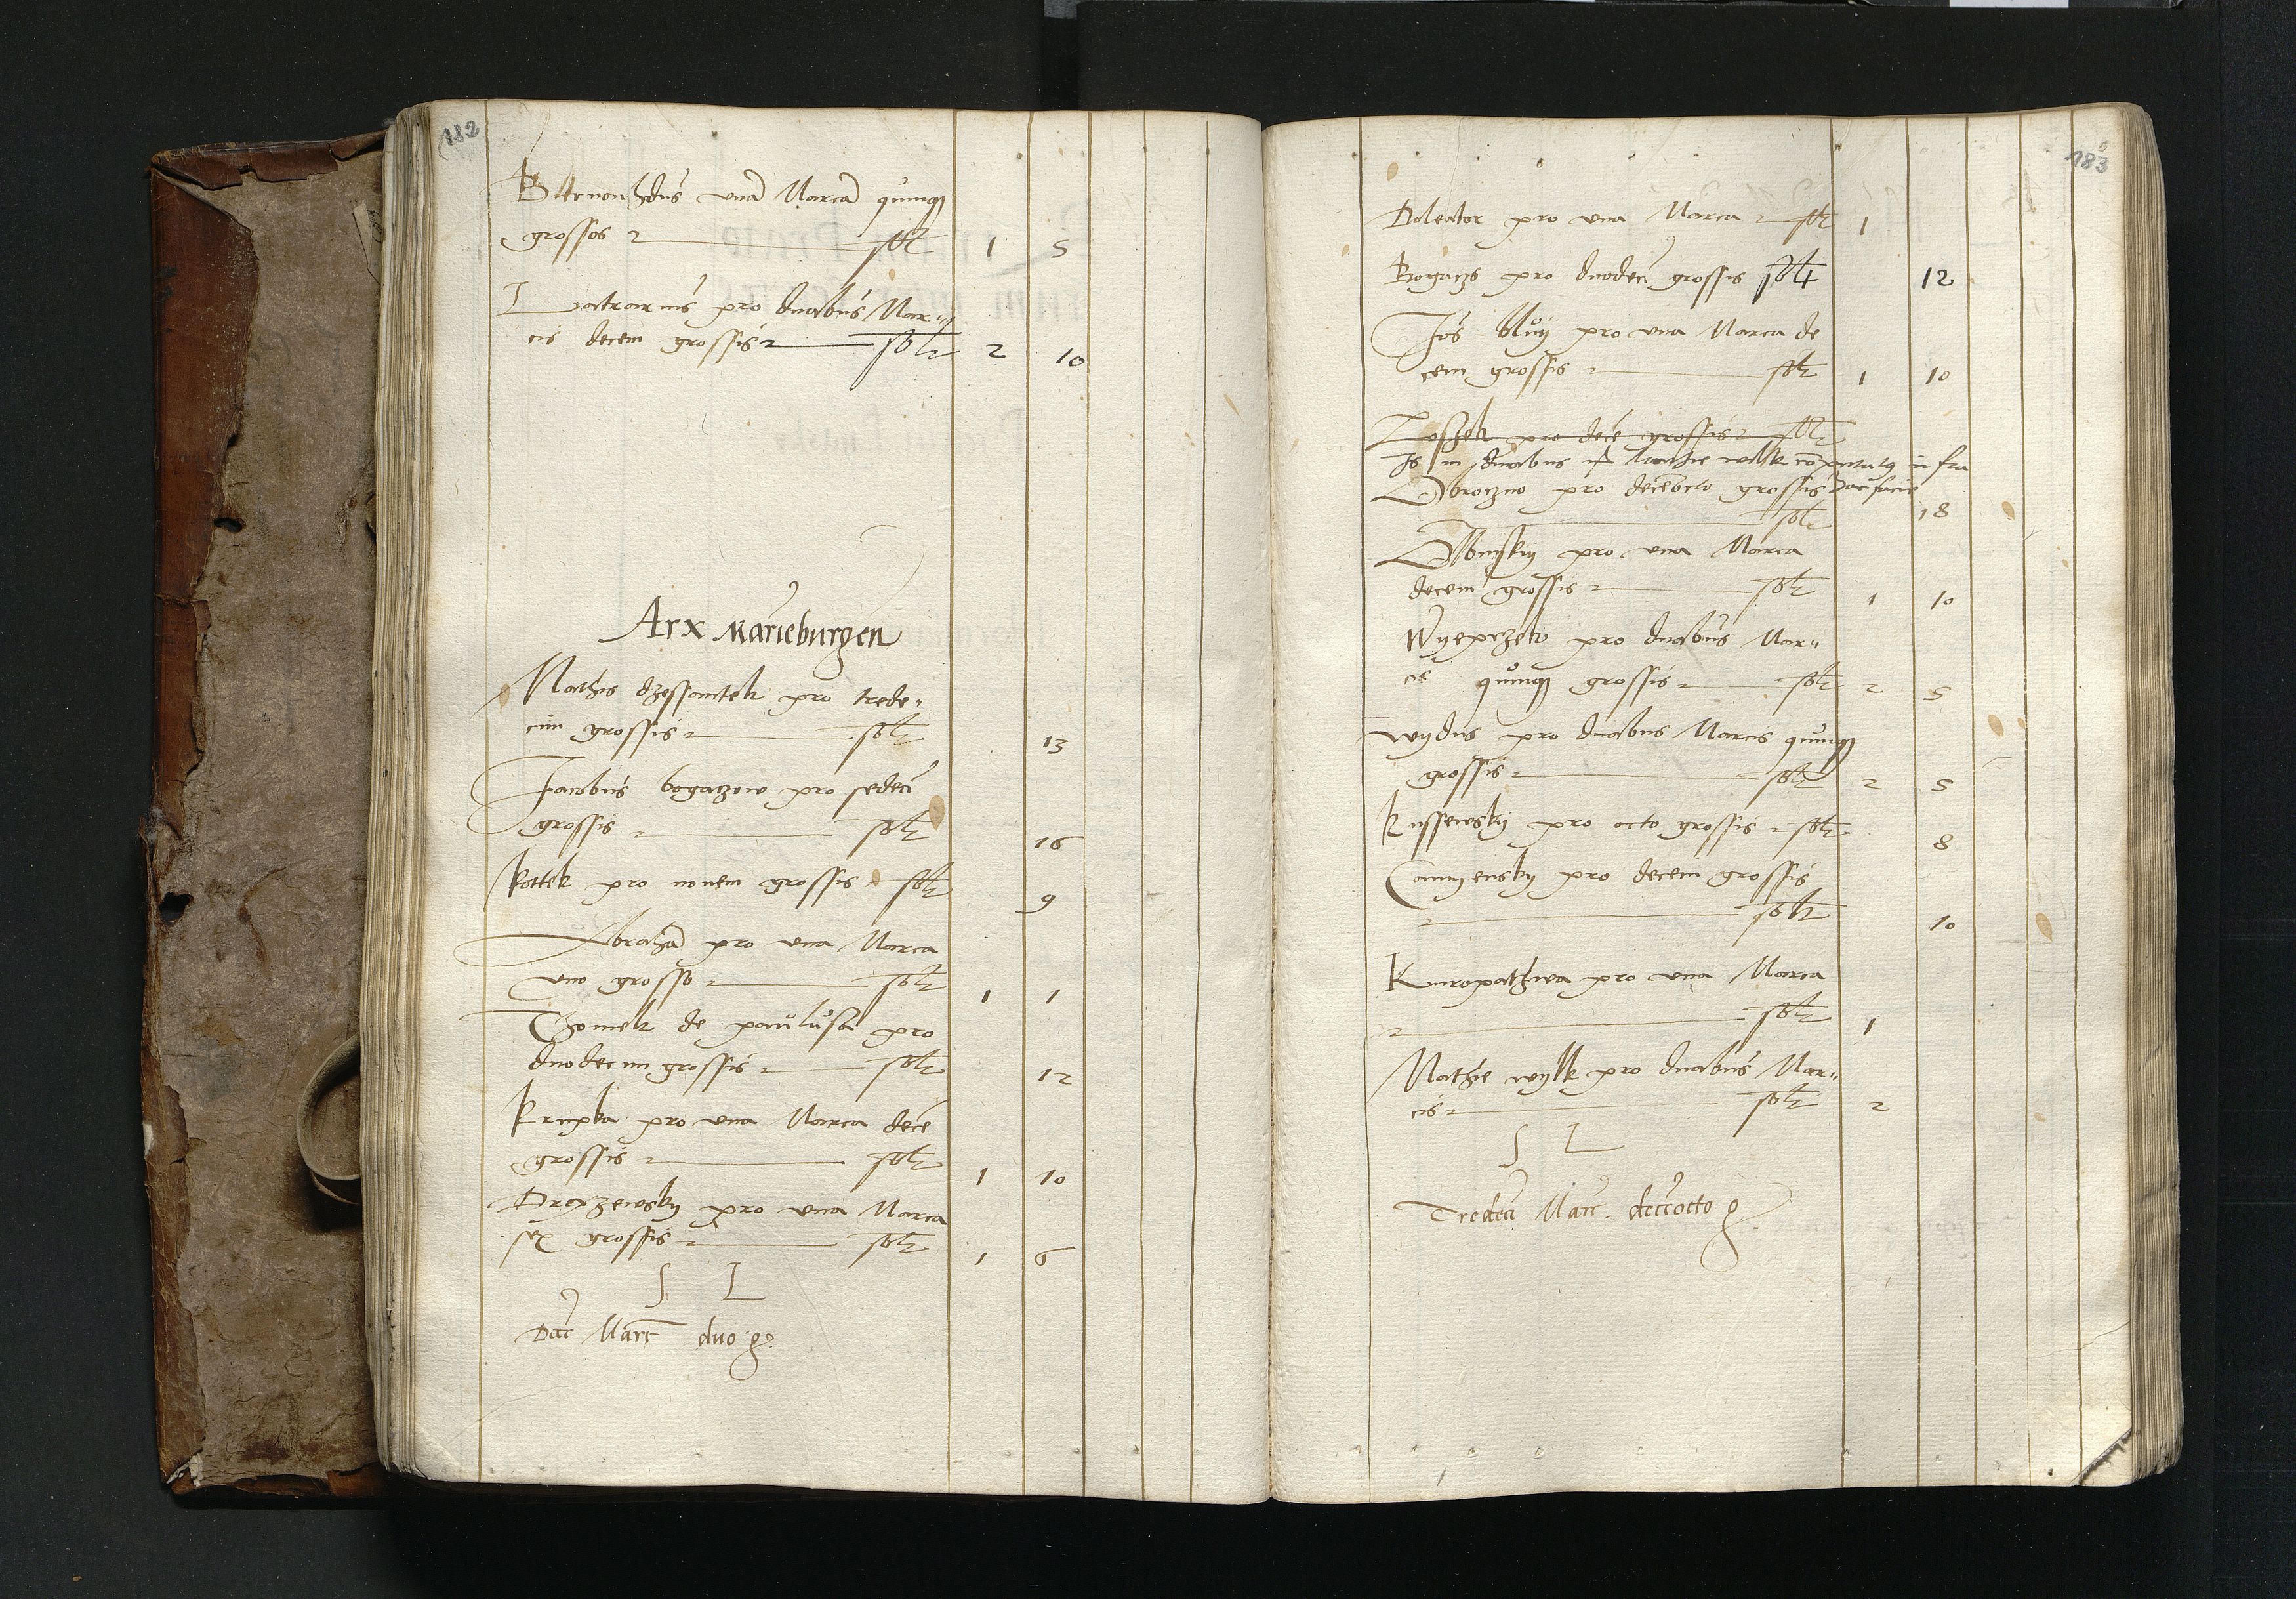 182
unā Marcā quinq
grossos solt 1 5
pro duabus Mar„
cis decem grossis solt 2 10
Arx Marieburgen
Mathis dzessantek pro trede„
cim grossis solt 13
Jacobus bogaczow pro sedeci
grossis solt 16
kottek pro novem grossis solt 9
Abrahā pro una Marca
uno grosso solt 1 1
Thomek de paulusa pro
duodecim grossis solt 12
Krupka pro una Marca decē
grossis solt 1 10
pro una Marca
sex grossis solt 1 6
S L
Marc duo g
183
Doleator pro una Marca solt 1
Bogaczs pro duodeci grossis solt 12
Jos bluij pro una Marca de
cem grossis solt 1 10
pro decē grossis solt
Is in duabus computatq infra
Obroczno pro decēocto grossis
solt 18
pro una Marca
decem grossis solt 1 10
Wyeprzek pro duabus Mar„
cis quinq grossis solt 2 5
wydus pro duabus Marcis quinq
grossis solt 2 5
Kussewsky pro octo grossis solt 8
Camyensky pro decem grossis
solt 10
Kuropathwa pro una Marca
solt 1
Mathie wylk pro duabus Mar„
cis solt 2
S L
Tredeci Marc. decēocto g